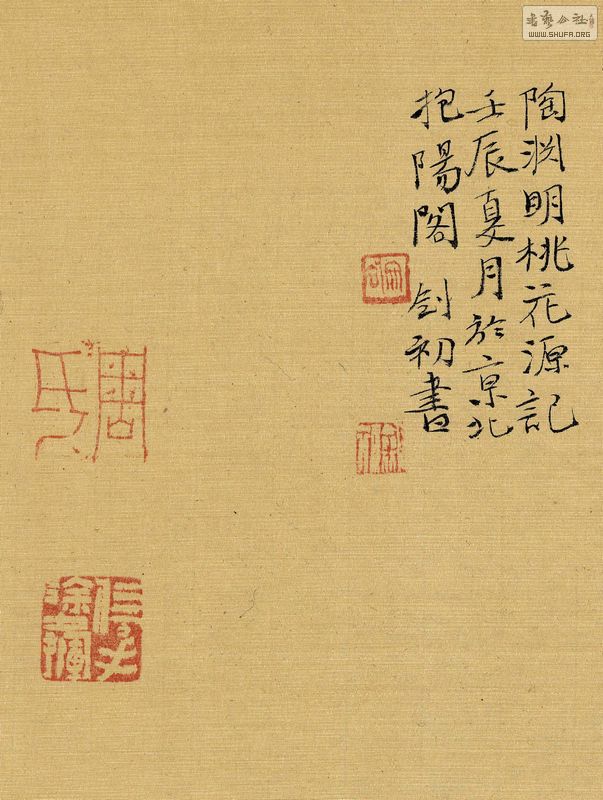 陶渊明桃花源記
壬辰夏月於京北
抱陽閣 剑初書
WWW.SHUFA.ORG